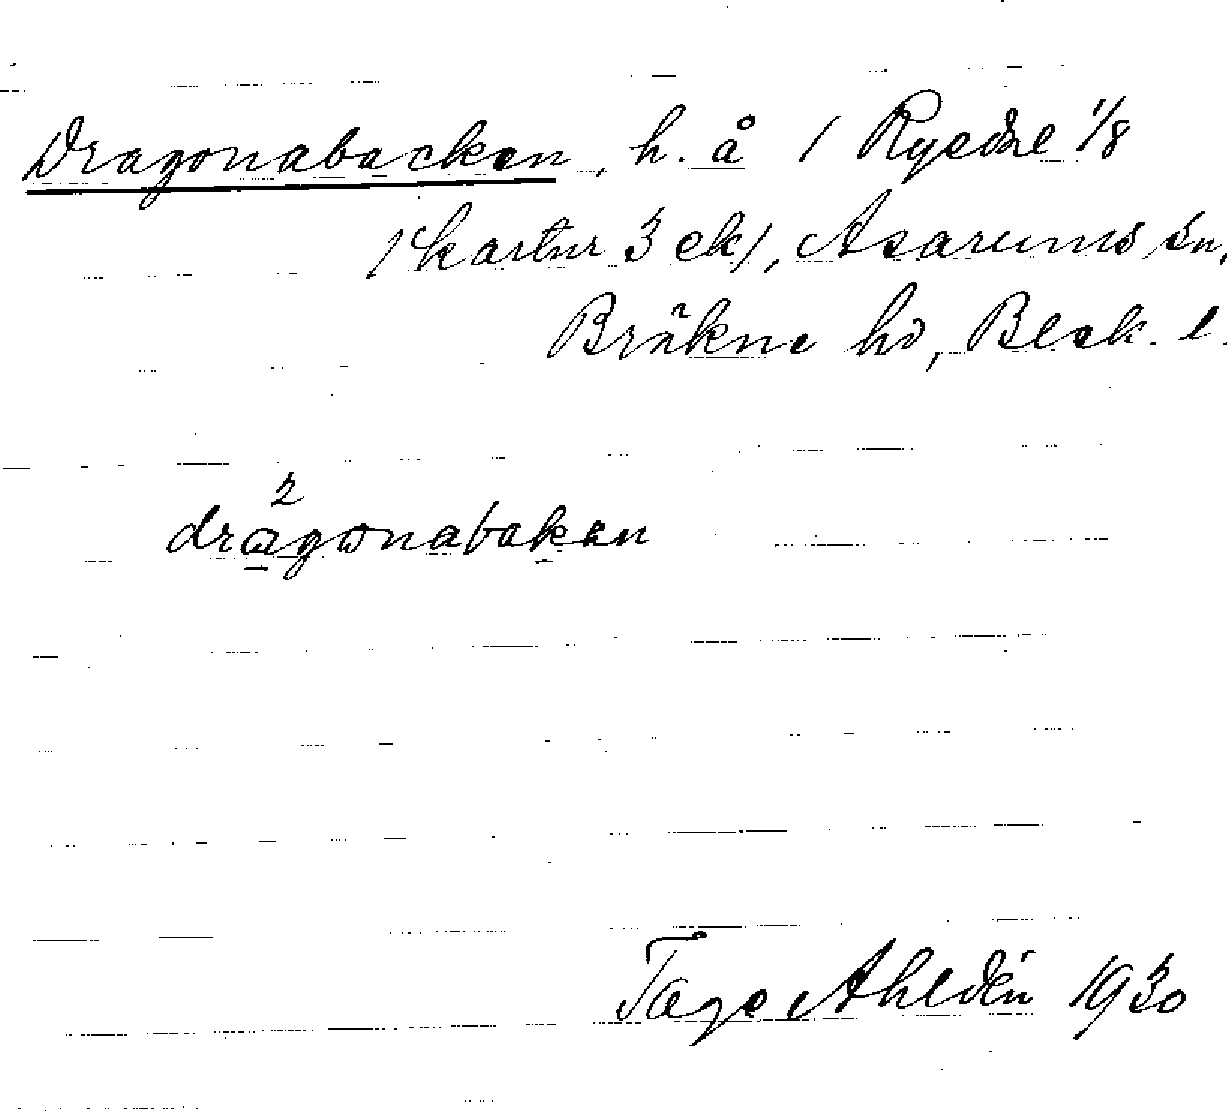 Dragonabacken, h. å 1 Ryedal 1/8
/kartur 3 ek/, Asarums sn,
Bräkne hd, Blek. l.
2
dragonabaken
Tage Ahldén 1930